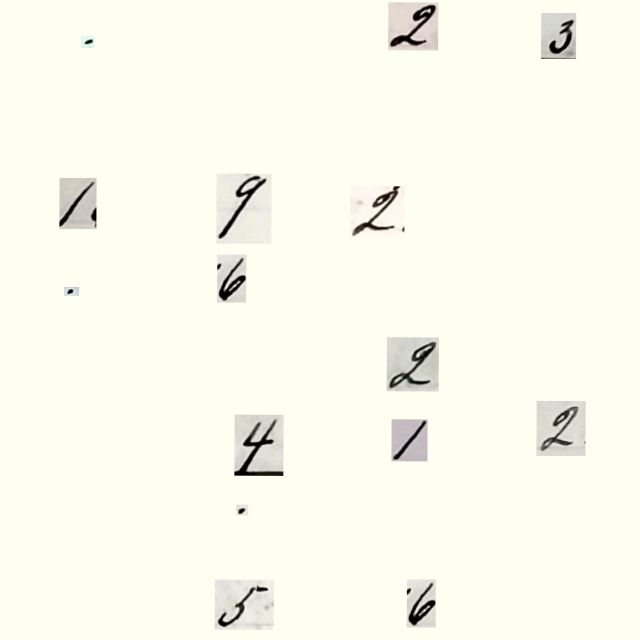 . 2 3
1 9 2.
. 6
2
4 1 2.
.
5 6